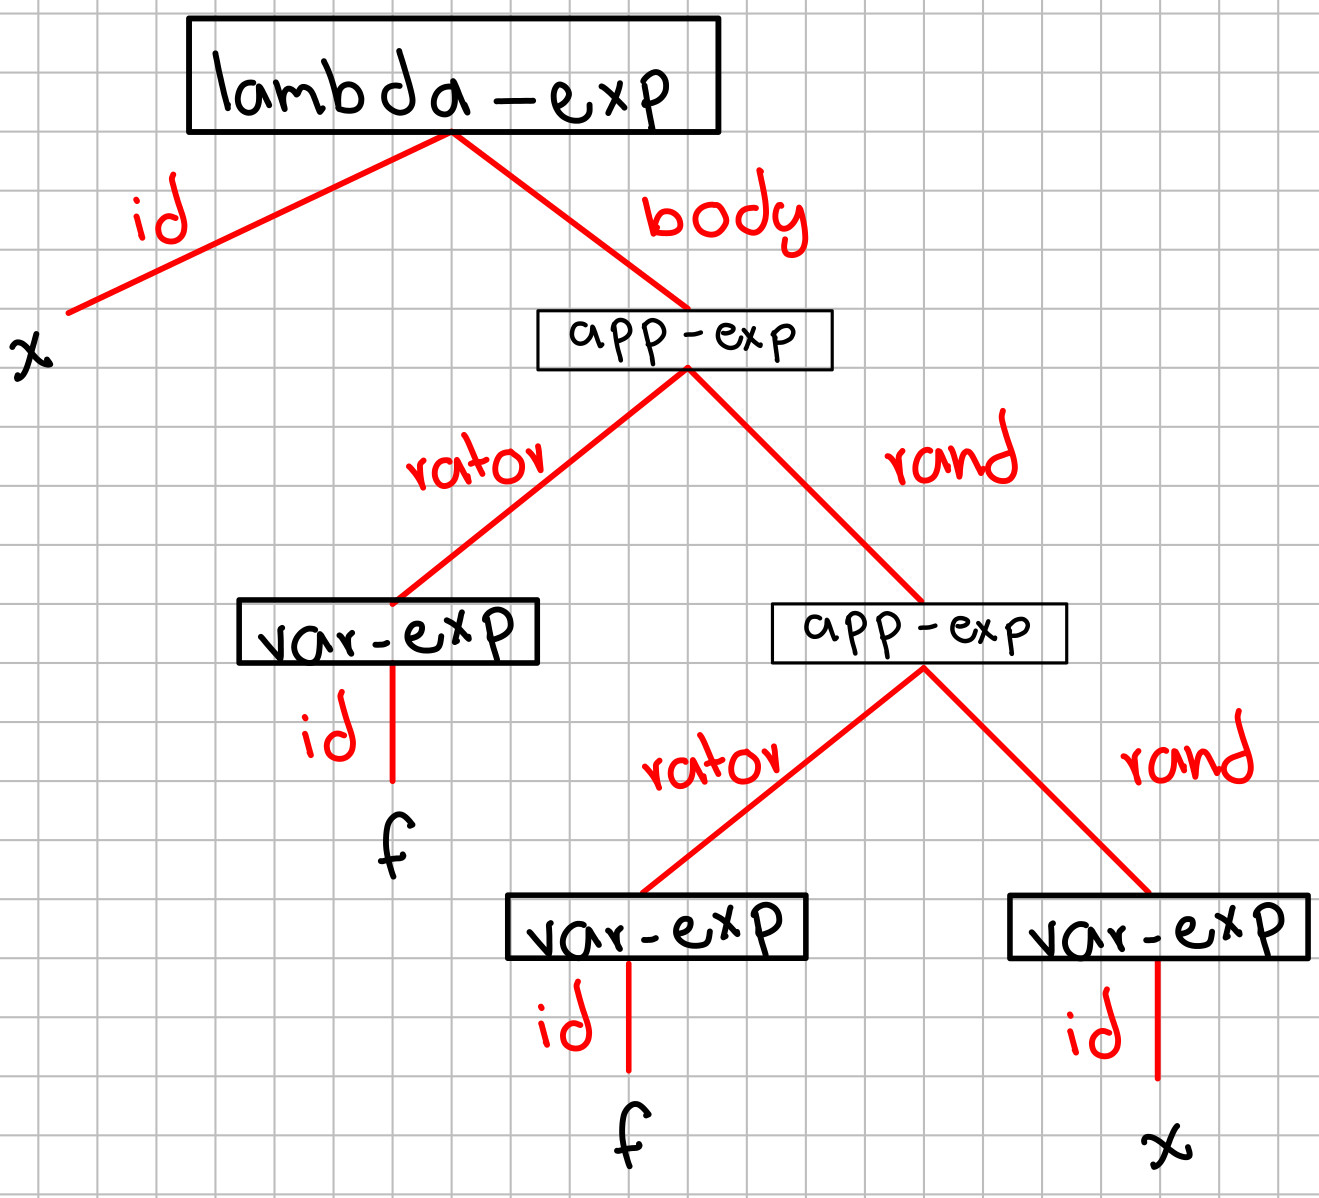 lambda-exp
id
body
x
app-exp
rator
rand
var-exp
app-exp
id
rator
rand
f
var-exp
var-exp
id
id
f
x